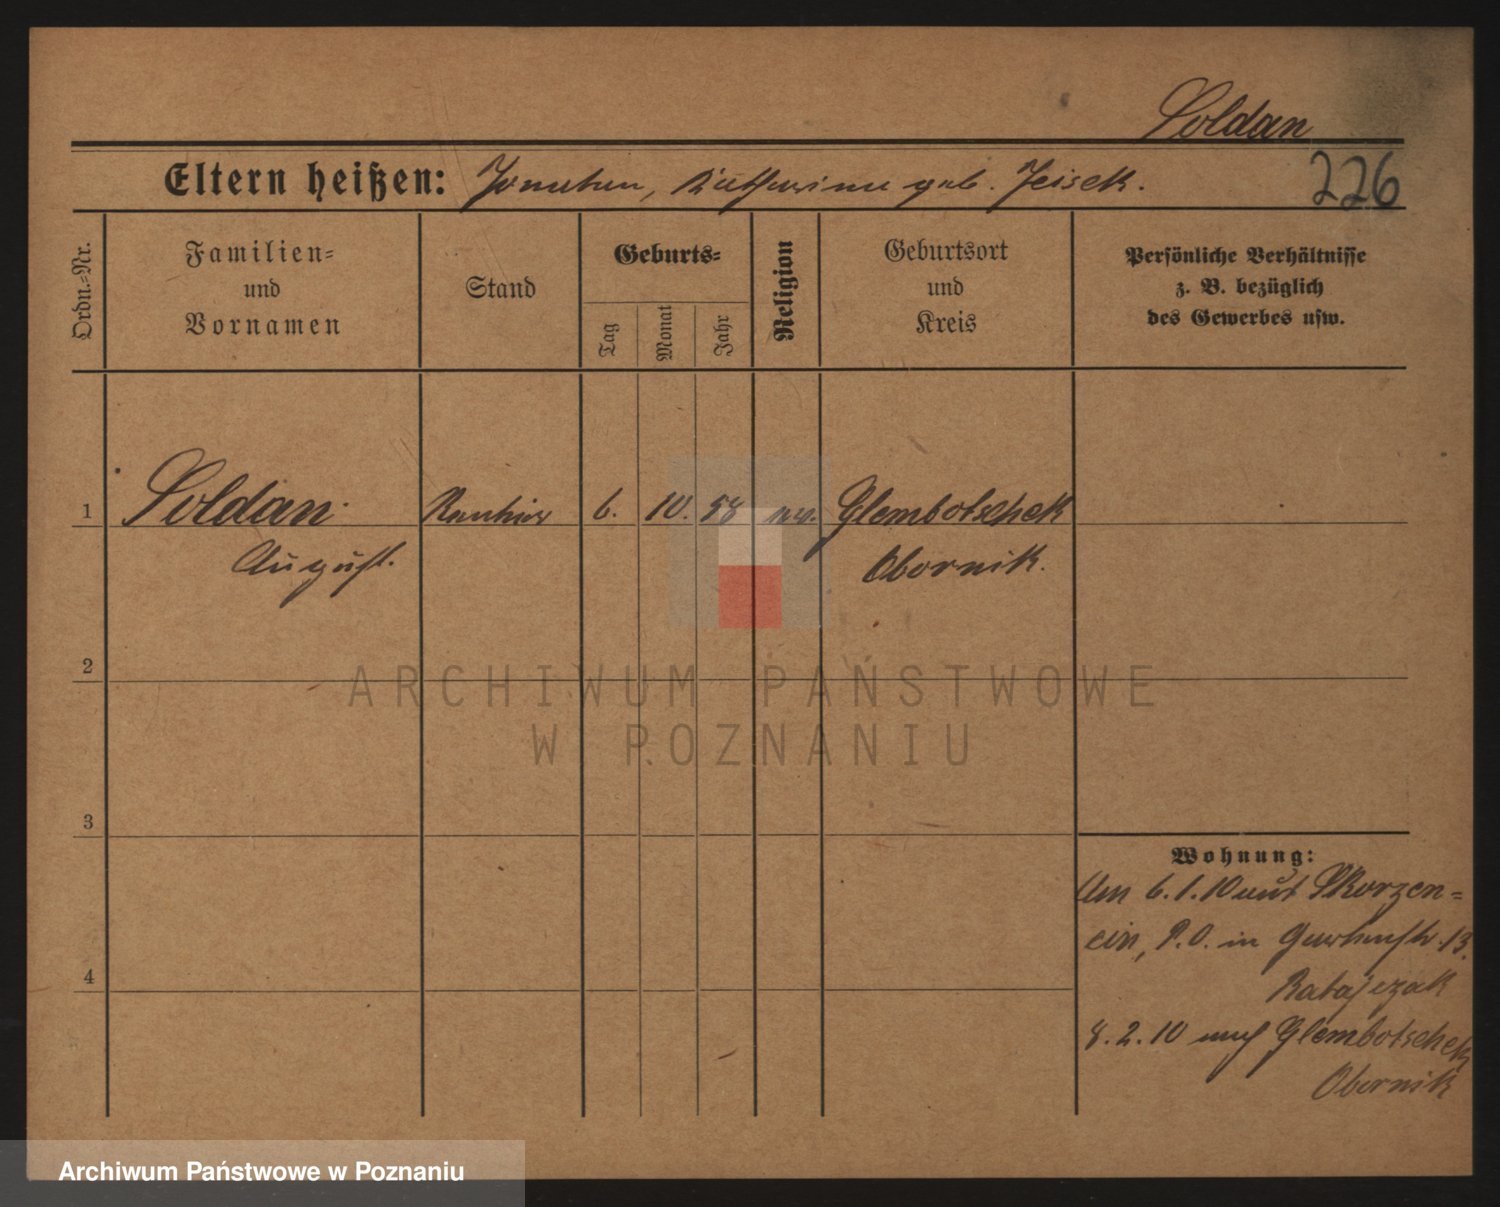 Soldan
Eltern heißen: Jonathan, Katharine geb. Jeisek.
226
Ordn.-Nr.
Familien-
und
Vornamen
Stand
Geburts-
Tag
Monat
Jahr
Religion
Geburtsort
und
Kreis
Persönliche Verhältnisse
z. B. bezüglich
des Gewerbes usw.
1
Soldan
Rentier
6.
10.
58
ev.
Glembotschek
August.
Obornik.
2
ARCHIWUM PAŃSTWOWE
W POZNANIU
3
Wohnung:
Am 6.1.10 aus Skorzen-
cin, P.O. in 13.
Ratajczak
8.2.10 nach Glembotschek
Obornik
4
Archiwum Państwowe w Poznaniu